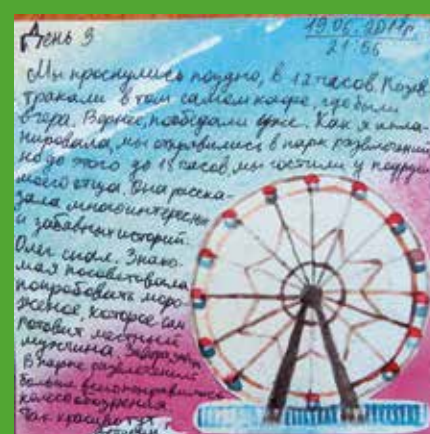 День 3
19.06.2017г.
21:56
Мы проснулись поздно, в 12 часов. Позав
тракали в том самом кафе, где были
вчера. Вернее, пообедали уже. Как я пла
нировала, мы отправились в парк развлечений
но до этого до 15 часов мы гостили у подруги
моего отца. Она расска-
зала много интересных
и забавных историй.
Олег спал. Знако-
мая посоветовала
попробовать моро-
женое, которое сам
готовит местный
мужчина.
В парке развлечений
больше всего понравилось
колесо обозрения.
Так красиво тут